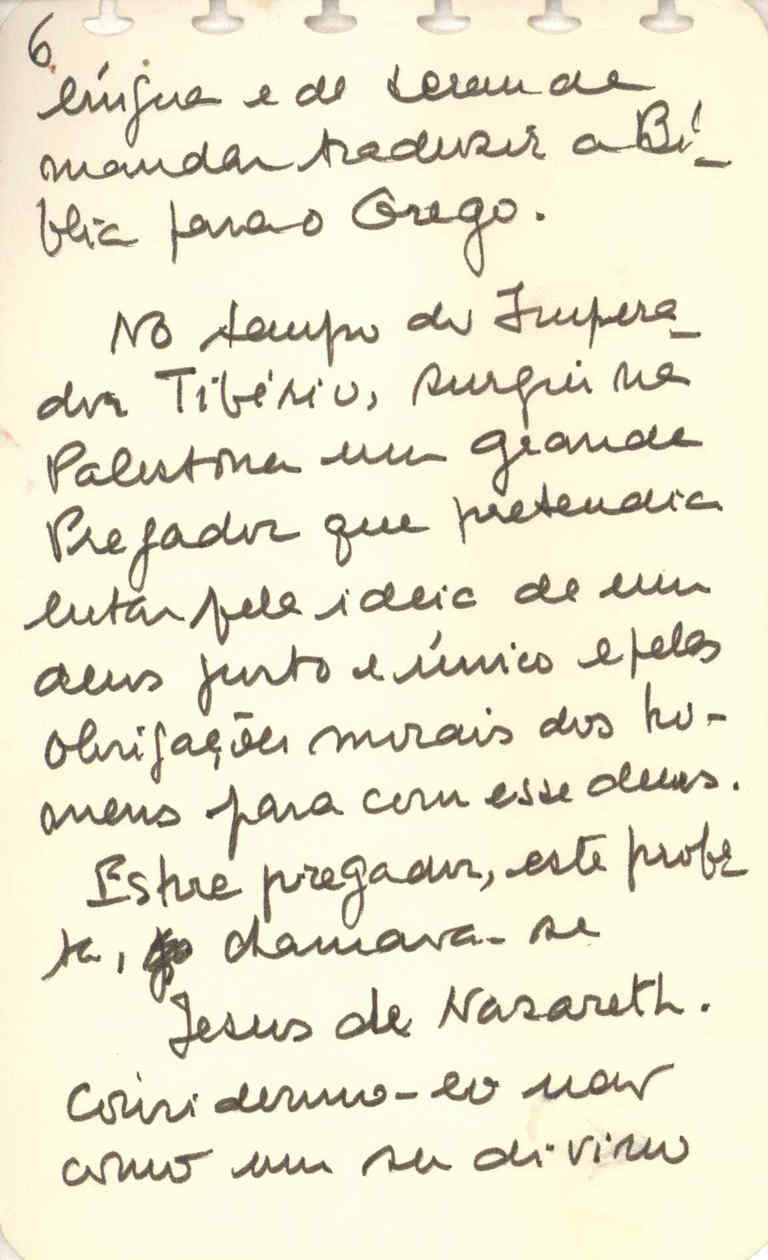 6
língua e de terem de
mandar traduzir a Bí-
blia para o Grego.
No tempo do Impera-
dor Tibério, surgiu na
Palestina um grande
Pregador que pretendia
lutar pela ideia de um
deus justo e único e pelas
obrigações morais dos ho-
mens para com esse deus.
Este pregador, este profe
ta, chamava-se
Jesus de Nazareth.
Considermo-lo nao
como um ser divino